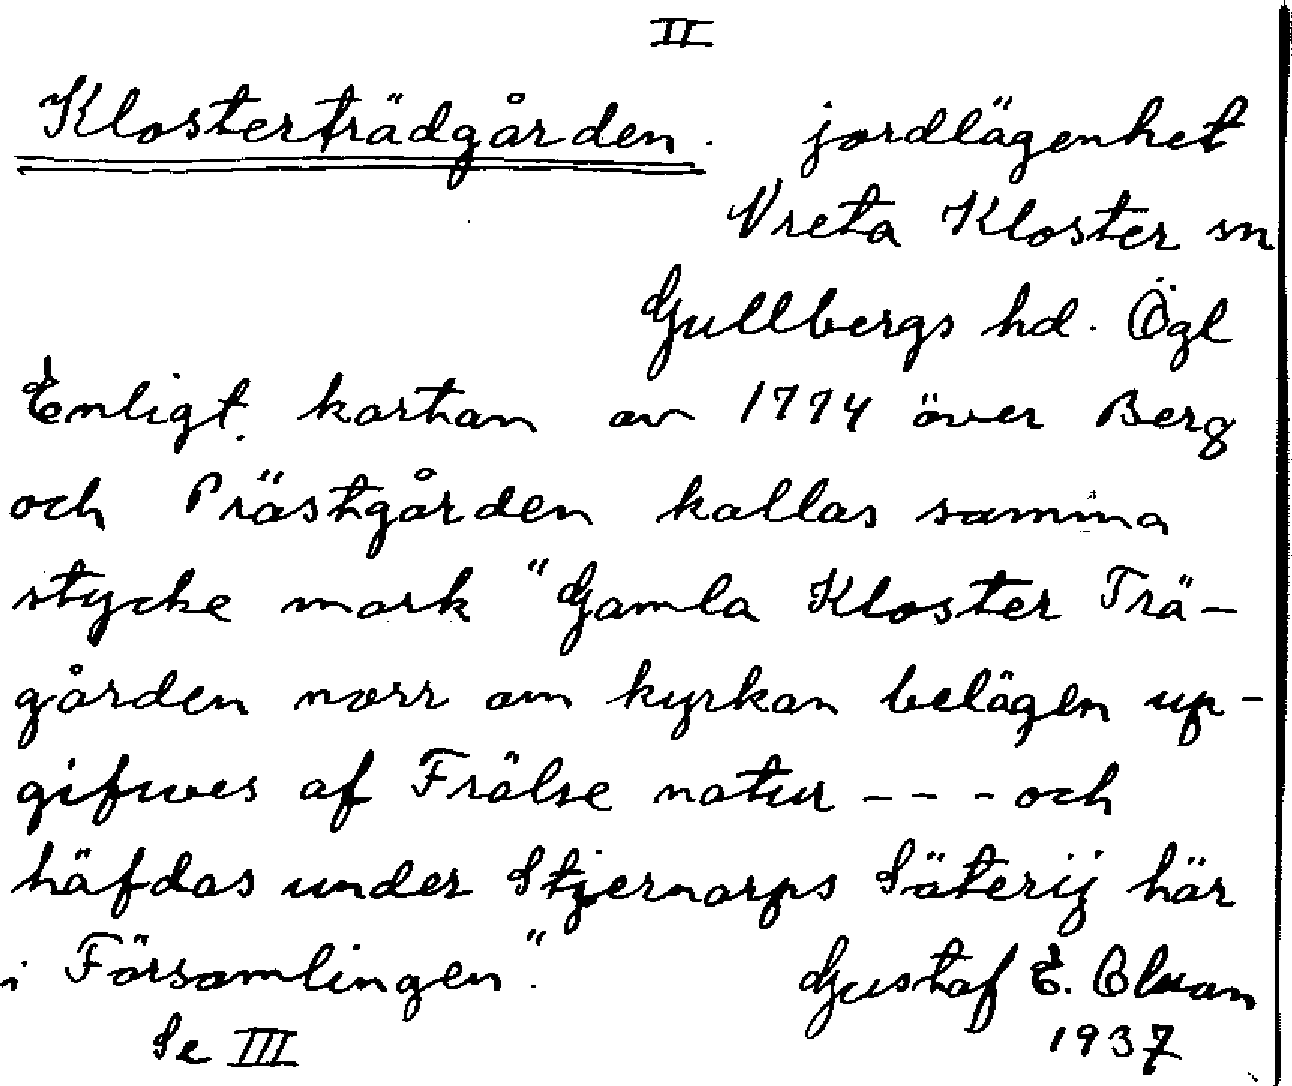 II
Klosterträdgården. jordlägenhet
Vreta Kloster sn
Gullbergs hd. Ögl
Enligt kartan av 1774 över Berg
och Prästgården kallas samma
stycke mark "Gamla Kloster Trä-
gården norr om kyrkan belägen up-
gifwes af Frälse natur - - - och
häfdas under Stjernarps Säterij här
i Församlingen." Gustaf E. Olsson
Se III 1937